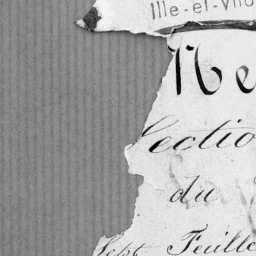 Ille-et-Vil
Me
Section
du
Sept Feuille